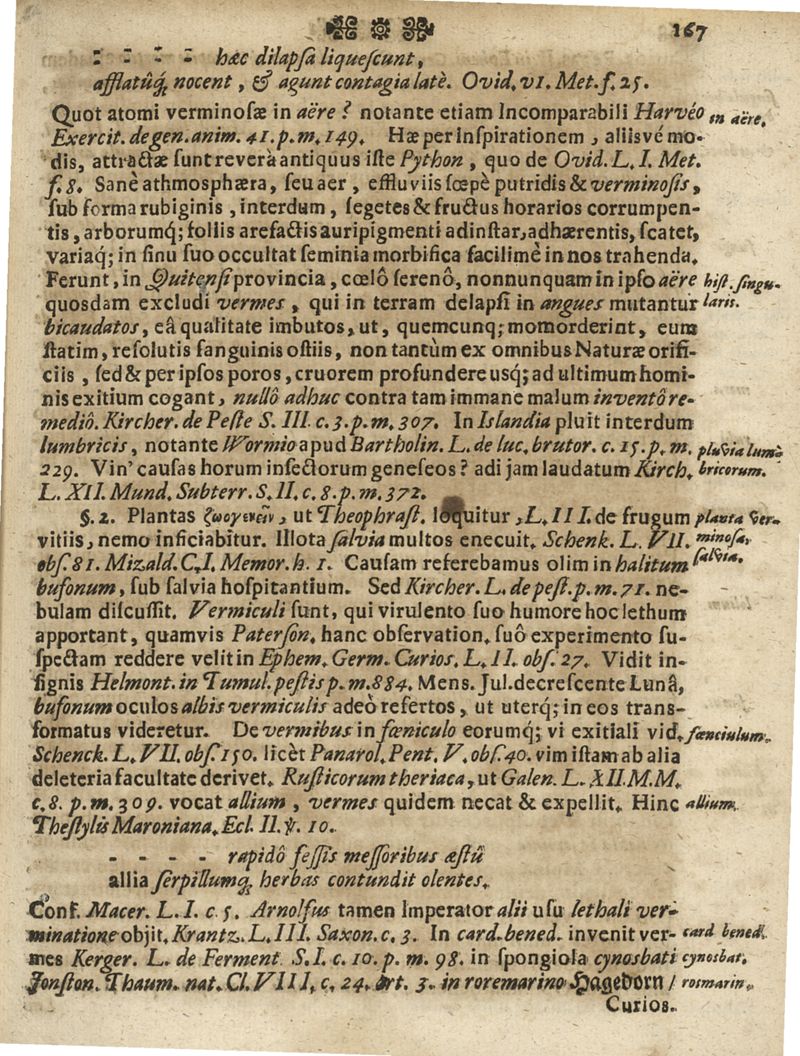 167
- - - - hæc dilapſa liqueſcunt,
afflatûq; nocent, & agunt contagia latè. Ovid. VI. Met. f. 25.
Quot atomi verminoſæ in aëre? notante etiam Incomparabili Harvéo in aëre.
Exercit. de gen. anim. 41. p. m. 149. Hæ per Inſpirationem, aliisvé mo-
dis, attractæ ſunt reverà antiquus iſte Python, quo de Ovid. L. I. Met.
f. 8. Sanè athmosphæra, ſeu aer, effluviis ſœpè putridis & verminoſis,
ſub forma rubiginis, interdum, ſegetes & fructus horarios corrumpen-
tis, arborumq; foliis arefactis auripigmenti ad inſtar, adhærentis, ſcatet,
variaq; in ſinu ſuo occultat ſeminia morbifica facilimè in nos trahenda.
Ferunt, in Quitenſi provincia, cœlô ſerenô, nonnunquam in ipſo aëre hiſt. ſingu-
quosdam excludi vermes, qui in terram delapſi in angues mutantur laris.
bicaudatos, eâ qualitate imbutos, ut, quemcunq; momorderint, eum
ſtatim, reſolutis ſanguinis oſtiis, non tantùm ex omnibus Naturæ orifi-
ciis, ſed & per ipſos poros, cruorem profundere usq; ad ultimum homi-
nis exitium cogant, nullô adhuc contra tam immane malum inventô re-
mediô. Kircher. de Peſte S. III. c. 3. p. m. 307. In Islandia pluit interdum
lumbricis, notante Wormio apud Bartholin. L. de luc. brutor. c. 15. p. m. pluvia lum-
229. Vin' cauſas horum inſectorum geneſeos? adi jam laudatum Kirch. bricorum.
L. XII. Mund. Subterr. S. II. c. 8. p. m. 372.
§. 2. Plantas ζωογενεῖν, ut Theophraſt. loquitur, L. III. de frugum planta ver-
vitiis, nemo inficiabitur. Illota ſalvia multos enecuit. Schenk. L. VII. minoſa,
obſ. 81. Mizald. C. I. Memor. h. 1. Cauſam referebamus olim in halitum ſalvia.
bufonum, ſub ſalvia hoſpitantium. Sed Kircher. L. de peſt. p. m. 71. ne-
bulam diſcuſſit. Vermiculi ſunt, qui virulento ſuo humore hoc lethum
apportant, quamvis Paterſon. hanc obſervation. ſuô experimento ſu-
ſpectam reddere velit in Ephem. Germ. Curios. L. II. obſ. 27. Vidit in-
ſignis Helmont. in Tumul. peſtis p. m. 884. Mens. Jul. decreſcente Lunâ,
bufonum oculos albis vermiculis adeò refertos, ut uterq; in eos trans-
formatus videretur. De vermibus in fœniculo eorumq; vi exitiali vid. fœniculum.
Schenck. L. VII. obſ. 150. licèt Panarol. Pent. V. obſ. 40. vim iſtam ab alia
deleteria facultate derivet. Ruſticorum theriaca, ut Galen. L. XII. M. M.
c. 8. p. m. 309. vocat allium, vermes quidem necat & expellit. Hinc allium.
Theſtylis Maroniana. Ecl. II. v. 10.
- - - - rapidô feſſis meſſoribus æſtû
allia ſerpillumq; herbas contundit olentes.
Conf. Macer. L. I. c. 5. Arnolfus tamen Imperator alii uſu lethali ver-
minatione objit. Krantz. L. III. Saxon. c. 3. In card. bened. invenit ver- card bened.
mes Kerger. L. de Ferment S. I. c. 10. p. m. 98. in ſpongioſa cynosbati cynosbat.
Jonſton. Thaum. nat. Cl. VIII. c. 24. Art. 3. in roremarino Hagedorn / rosmarin.
Curios.